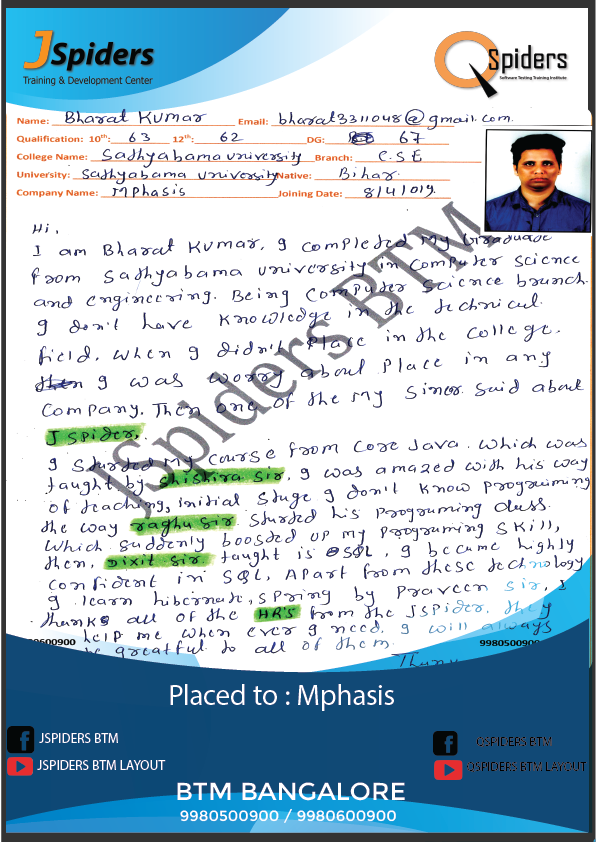 JSpiders
Training & Development Center
QSpiders
Software Testing Training Institute
Name: Bharat Kumar Email: bharat3311048@gmail.com.
Qualification: 10th: 63 12th: 62 DG: 67
College Name: Sadhyabama university Branch: C.S.E
University: Sadhyabama university Native: Bihar.
Company Name: Mphasis Joining Date: 8/4/019.
Hi,
I am Bharat Kumar, I completed My Graduate
from Sadhyabama university in Computer Science
and engineering. Being Computer Science branch
I don't have Knowledge in the technical
field. When I didn't Place in the College.
I was worry about Place in any
Company. Then one of the My Sinor Said about
J Spider.
I Started My Course from Core Java. Which was
taught by Shishira Sir. I was amazed with his way
of teaching, initial Stage I don't Know programing
the way raghu Sir. Started his programing class.
Which Suddenly boosted up my programing Skill,
then, Dixit Sir taught is SQL, I became highly
Confident in SQL, Apart from these technology
I learn hibernate, Spring by Praveen Sir, I
thanks all of the HR'S from the JSpider. they
help me when ever I need. I will always
be greatful to all of them.
9600900 9980500900
JSpiders BTM
Placed to : Mphasis
JSPIDERS BTM QSPIDERS BTM
JSPIDERS BTM LAYOUT QSPIDERS BTM LAYOUT
BTM BANGALORE
9980500900 / 9980600900